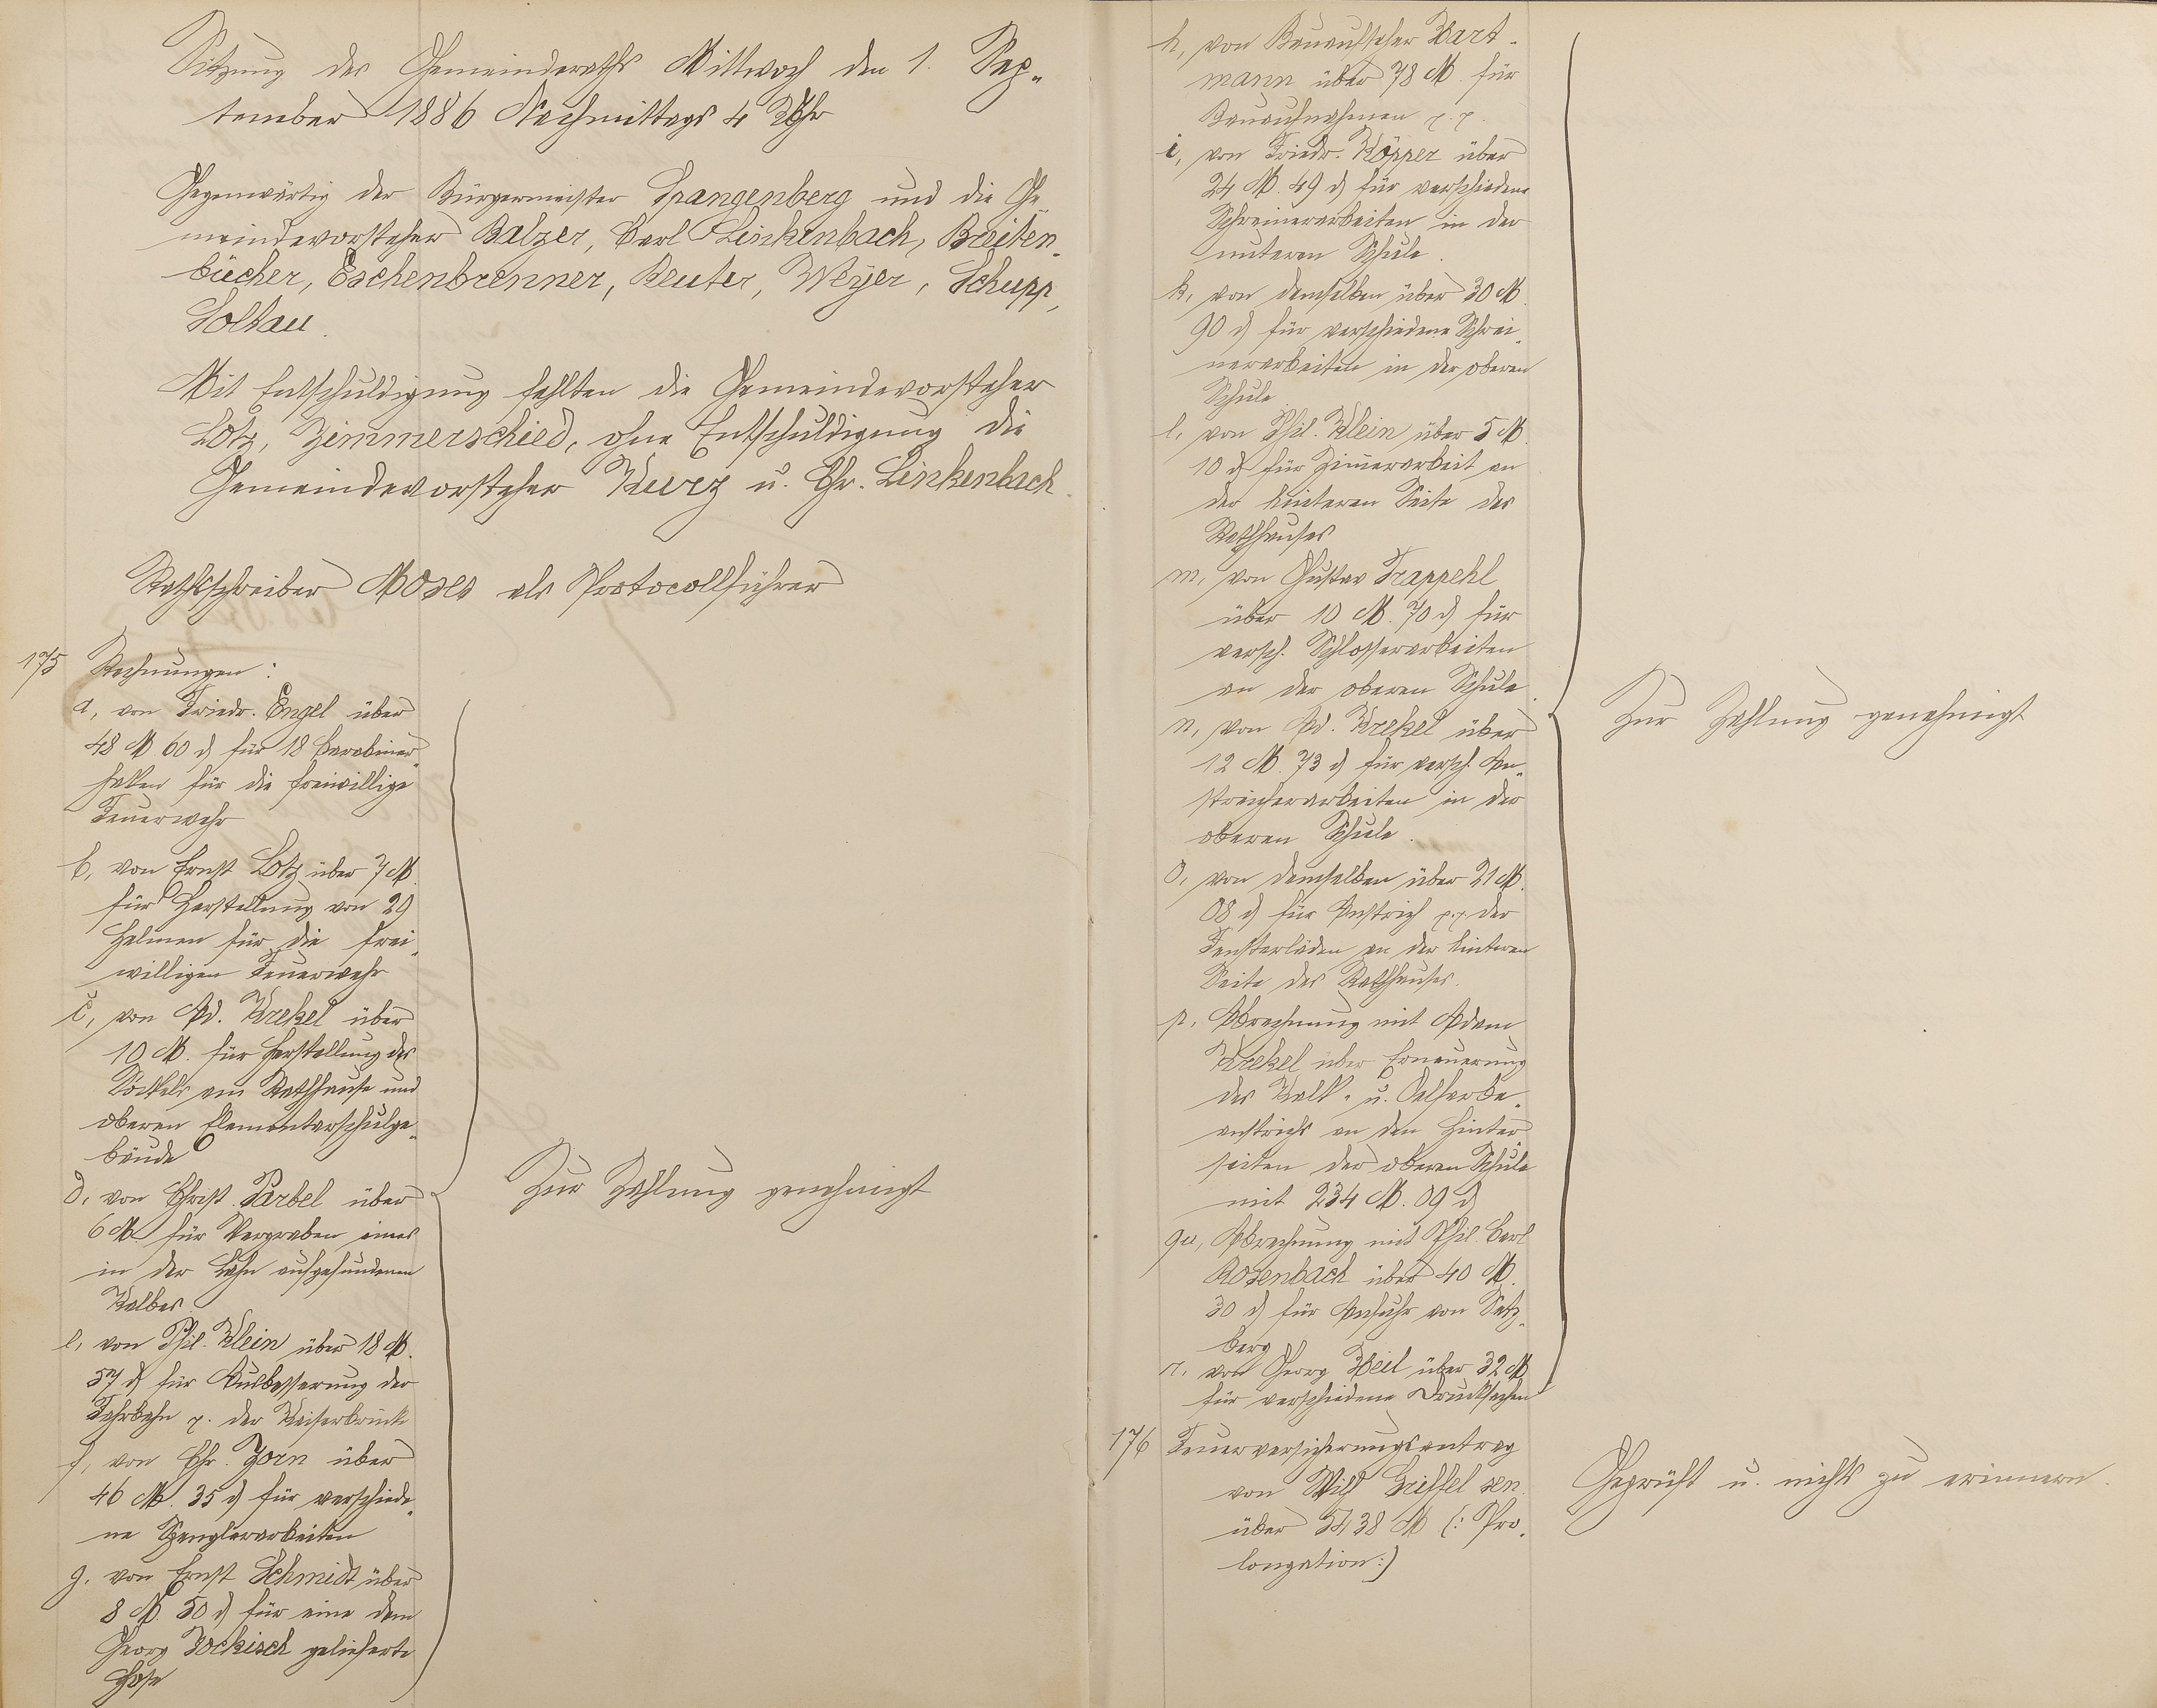 Sitzung des Gemeinderaths Mittwoch den 1. Sep-
tember 1886 Nachmittags 4 Uhr
Gegenwärtig der Bürgermeister Spangenberg und die Ge-
meindevorsteher Balzer, Carl Linkenbach, Breiten-
bücher, Eschenbrenner, Reuter, Meyer, Schupp,
Soltau.
Mit Entschuldigung fehlten die Gemeindevorsteher
Lotz, Zimmerschied, ohne Entschuldigung die
Gemeindevorsteher Kurz u. Chr. Linkenbach.
Rathsschreiber Moses als Protocollführer
175 Rechnungen:
a, von Friedr. Engel über
48 M 60 d für 18 Carabiner-
haken für die freiwillige
Feuerwehr
b, von Ernst Lotz über 7 M.
für Herstellung von 29
Helmen für die frei-
willigen Feuerwehr
c, von Ad. Krekel über
10 M. für Herstellung des
Sockels am Rathhause und
oberen Elementarschulge-
bäude
d, von Christ. Parbel über
6 M. für Vergraben eines
in der Lahn aufgefundenen
Kalbes.
e, von Phil. Klein über 18 M.
57 d für Ausbesserung der
Fahrbahn p. der Kaiserbrücke
f, von Chr. Zorn über
46 M. 35 d für verschiede-
ne Spenglerarbeiten
g, von Ernst Schmidt über
8 M. 50 d für eine dem
Georg Jockisch gelieferte
Hose
Zur Zahlung genehmigt
h, von Bauaufseher Hart-
mann über 78 M. für
Bauaufnahmen p.p.
i, von Friedr. Köpper über
24 M. 49 d für verschiedene
Schreinerarbeiten in der
unteren Schule.
k, von demselben über 30 M.
90 d für verschiedene Schrei-
nerarbeiten in der oberen
Schule.
l, von Phil. Klein über 5 M.
10 d für Zimerarbeit an
der hinteren Seite des
Rathhauses
m, von Gustav Trappehl
über 10 M. 70 d für
versch. Schlosserarbeiten
an der oberen Schule.
n, von Ad. Krekel über
12 M. 73 d für versch. An-
streicherarbeiten in der
oberen Schule.
o, von demselben über 21 M.
08 d für Anstrich p.p. der
Fensterläden an der hinteren
Seite des Rathhauses.
p, Abrechnung mit Adam
Krekel über Erneuerung
des Kalk- u. Oelfarbe-
anstrichs an den Hinter
seiten der oberen Schule
mit 234 M. 09 d
qu, Abrechnung mit Phil. Carl
Rosenbach über 40 M.
30 d für Anfuhr von Satz-
berg
r, von Georg Heil über 32 M
für verschiedene Drucksachen
Zur Zahlung genehmigt
176 Feuerversicherungsantrag
von Wilh Greiffel sen.
über 5438 M (: Pro-
longation:)
Geprüft u. nichts zu erinnern.